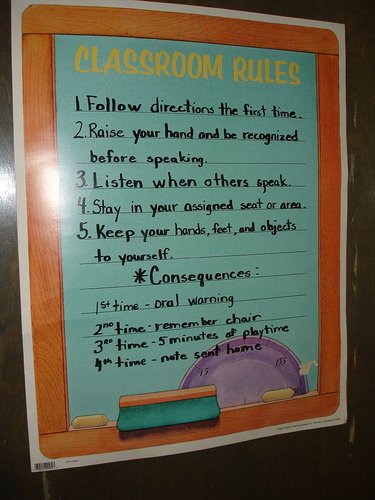 CLASSROOM RULES
1. Follow directions the first time.
2. Raise your hand and be recognized
before speaking.
3. Listen when others speak.
4. Stay in your assigned seat or area.
5. Keep your hands, feet, and objects
to yourself.
*Consequences:
1st time - oral warning
2nd time - remember chair
3rd time - 5 minutes of playtime
4th time - note sent home
45
135